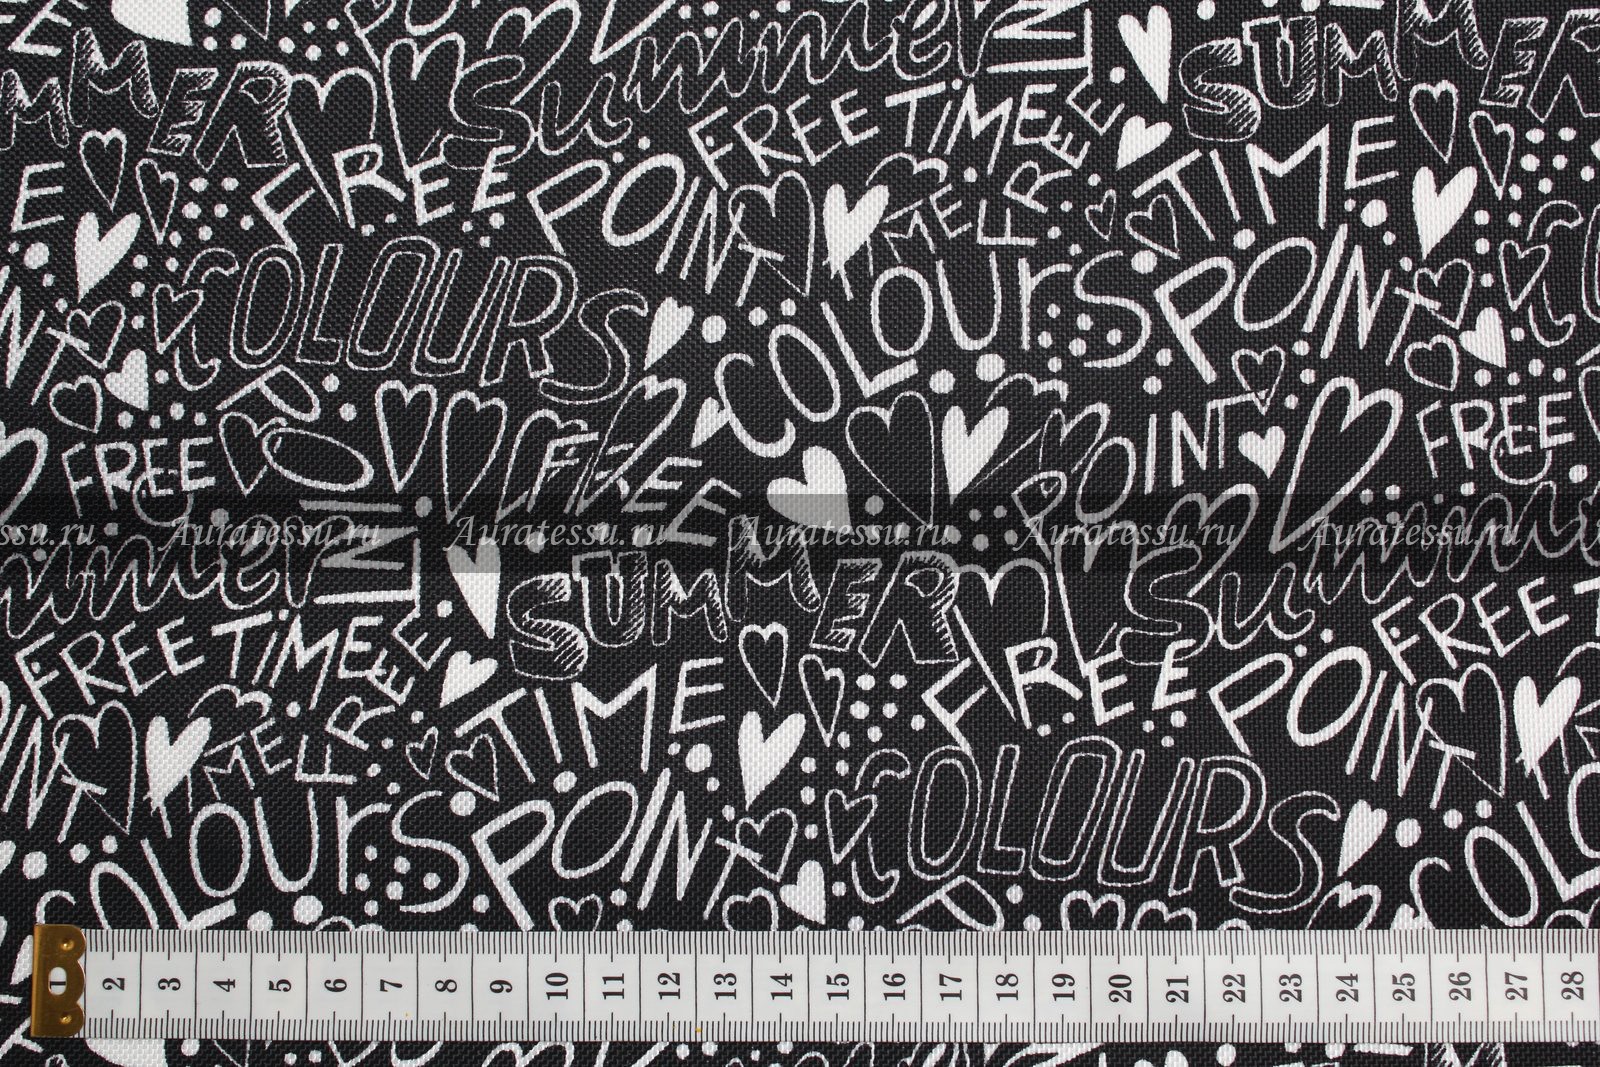 SUMMER
Summer
FREE TiME
SUMMER
FREE
POINT
TIME
FREE
TIME
COLOURS
COLOURS
POINT
FREE
FREE
POINT
FREE
Auratessu.ru Auratessu.ru Auratessu.ru Auratessu.ru Auratessu.ru
Summer
SUMMER
Su
FREE TiME
FREE
TIME
FREE
POINT
FREE
POINT
TIME
COLOURS
POINT
COLOURS
COLO
1 2 3 4 5 6 7 8 9 10 11 12 13 14 15 16 17 18 19 20 21 22 23 24 25 26 27 28